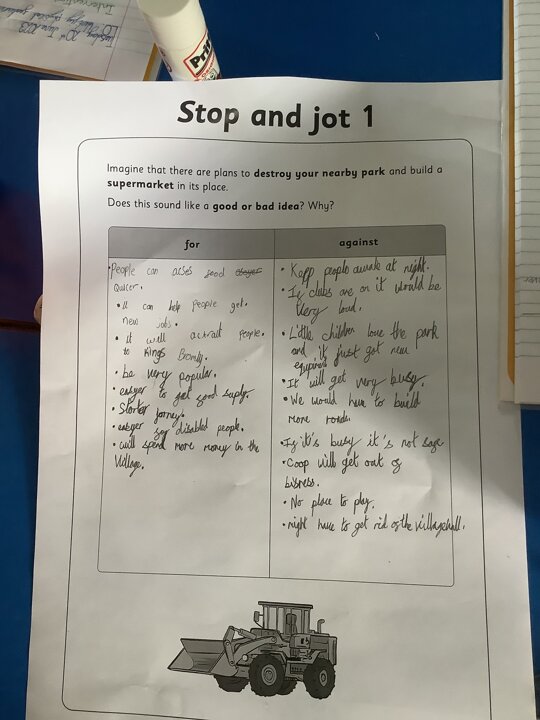 Tuesday 20th June 2023
Prit
Stop and jot 1
Imagine that there are plans to destroy your nearby park and build a
supermarket in its place.
Does this sound like a good or bad idea? Why?
for
• People can acses food
Quicer.
• it can help people get.
new jobs.
• it will actract people.
to Kings Bromly.
• be very popular.
• easyer to get good suply.
• Storter jorney.
• easyer for disabled people.
• will spend more money in the
Village.
against
• Keep people awake at night.
• If clubs are on it would be
Very loud.
• Little children love the park
and it just got new
• It will get very busy.
• We would have to build
more roads.
• If it's busy it's not safe
• Coop will get out of
bisness.
• No place to play.
• might have to get rid of the village hall.